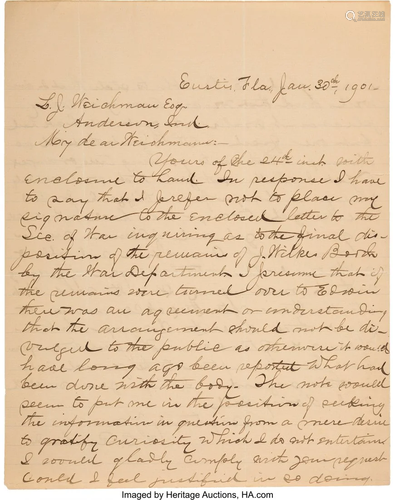 Eustis, Fla, Jan. 30th, 1901-
L. J. Weichman Esq-
Anderson, Ind
My dear Weichmann:-
Yours of the 24th inst with
enclosure to hand. In response I have
to say that I prefer not to place my
signature to the enclosed letter to the
Sec of War inquiring as to the final dis-
position of the remains of J. Wilkes Booth
by the War Department I presume that if
the remains were turned over to Edwin
there was an agreement or understanding
that the arrangement should not be di-
vulged to the public as otherwise it would
have long ago been reported what had
been done with the body. The note would
seem to put me in the position of seeking
the information in question from a mere desire
to gratify curiosity which I do not entertain
I would gladly comply with your request
could I feel justified in so doing.
Imaged by Heritage Auctions, HA.com